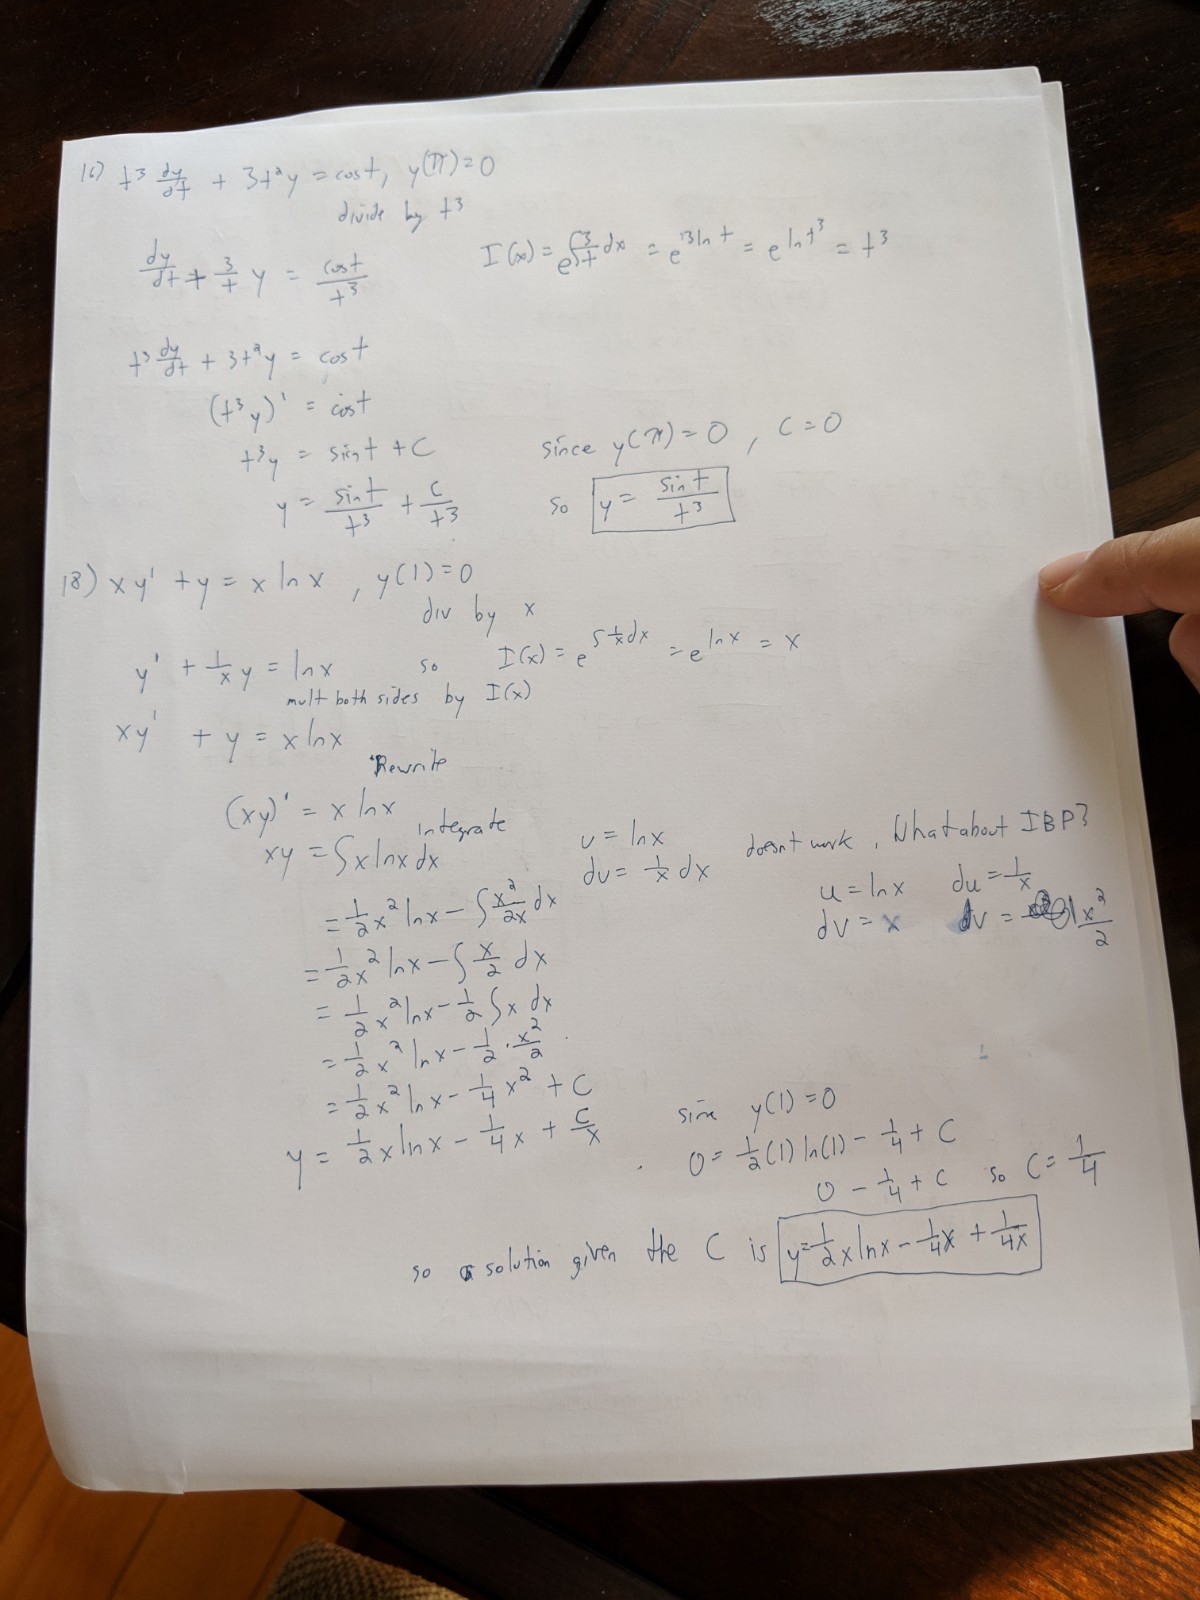 16) t³ dy/dt + 3t²y = cost, y(π)=0
divide by t³
dy/dt + 3/t y = cost/t³    I(x) = e^∫3/t dx = e^3lnt = e^lnt³ = t³
t³ dy/dt + 3t²y = cost
(t³y)' = cost
t³y = sint + C    since y(π)=0, C=0
y = sint/t³ + C/t³    so y = sint/t³
18) xy' + y = x ln x, y(1)=0
div by x
y' + 1/x y = lnx    so I(x) = e^∫1/x dx = e^lnx = x
mult both sides by I(x)
xy' + y = x lnx
Rewrite
(xy)' = x lnx
integrate
xy = ∫x lnx dx    u = lnx    doesnt work, What about IBP?
du = 1/x dx    u = lnx    du = 1/x
= 1/2 x² lnx − ∫x²/2x dx    dv = x    v = x²/2
= 1/2 x² lnx − ∫x/2 dx
= 1/2 x² lnx − 1/2 ∫x dx
= 1/2 x² lnx − 1/2 · x²/2
= 1/2 x² lnx − 1/4 x² + C    sine y(1)=0
y = 1/2 x lnx − 1/4 x + C/x    0 = 1/2(1) ln(1) − 1/4 + C
0 − 1/4 + C    so C = 1/4
so a solution given the C is y = 1/2 x lnx − 1/4 x + 1/4x